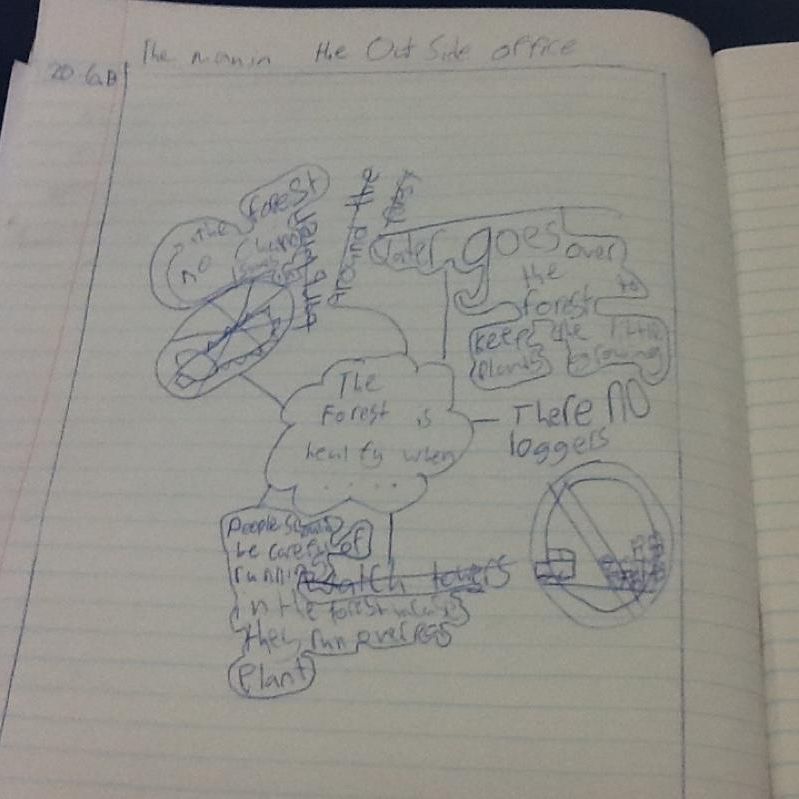 The man in the Out Side office
20
the forest
no
around the
water goes over
the
forest to
keep the little
plants growing
The
Forest is
healty when
. . . . .
There NO
loggers
People should
be careful of
running
watch towers
in the forest
they run over
Plant